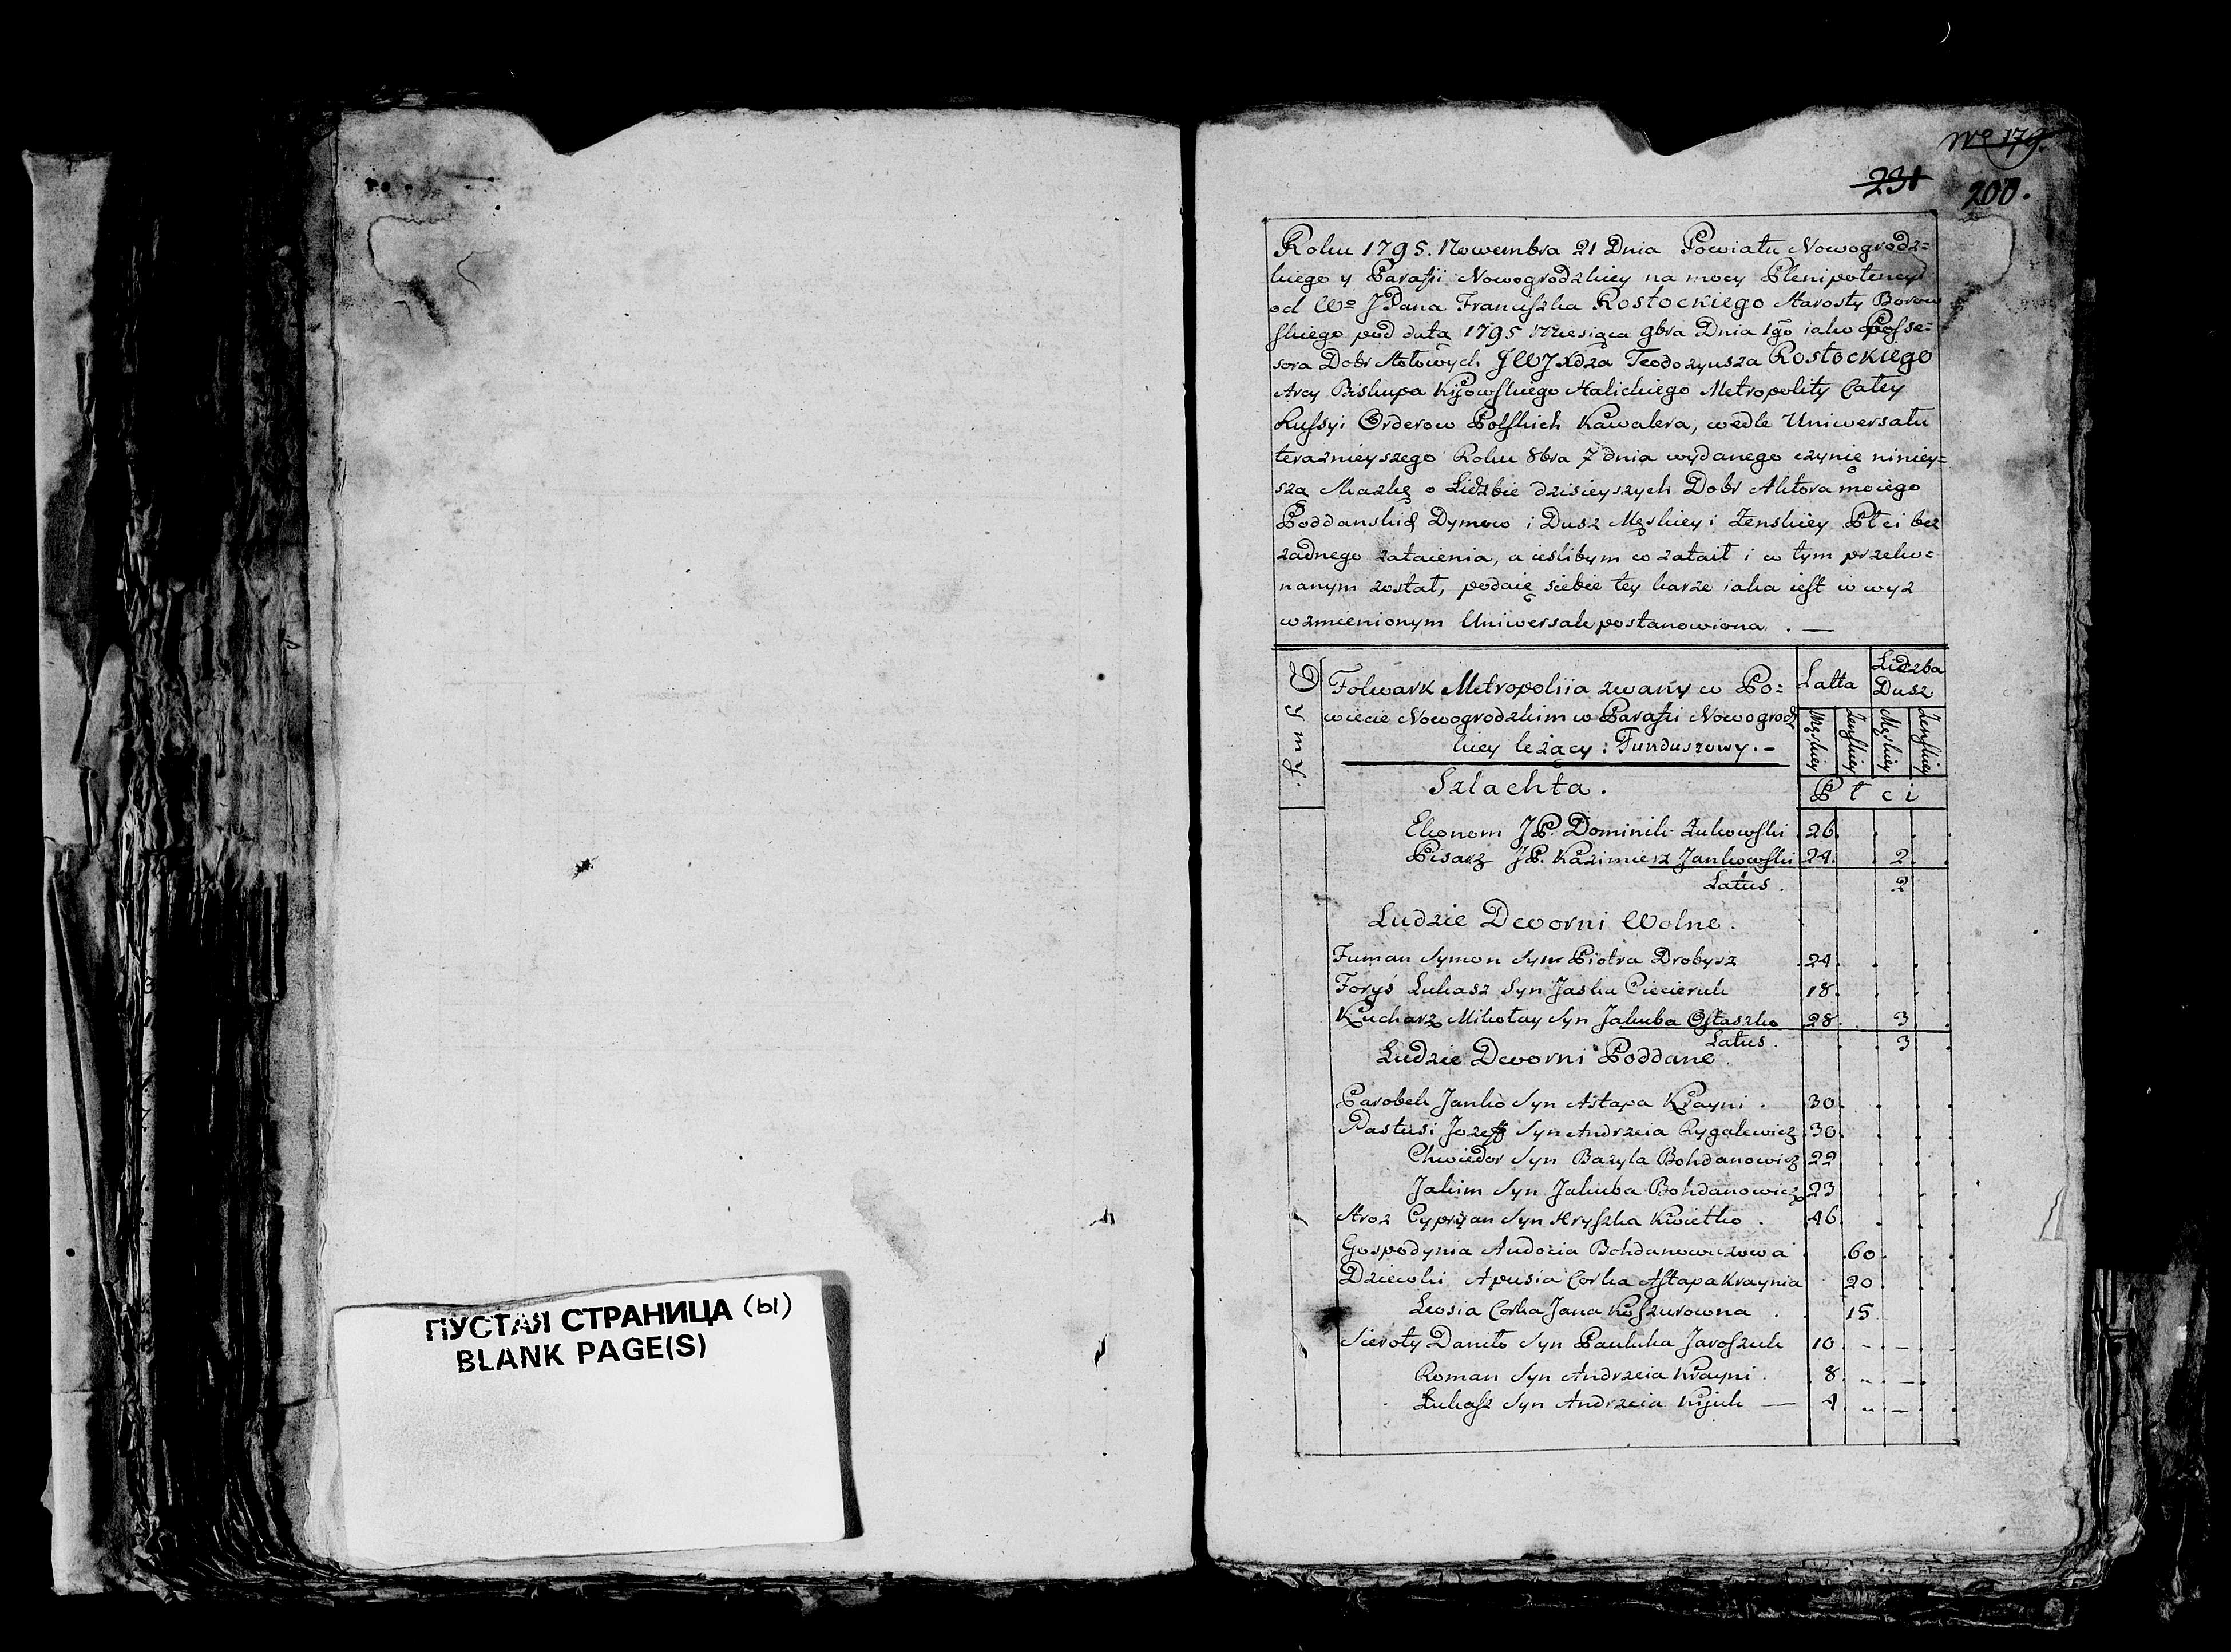 ПУСТАЯ СТРАНИЦА (ы)
BLANK PAGE(S)
No 179.
231
200.
Roku 1795. Nowembra 21 Dnia Powiatu Nowogrodz=
kiego y Parafii Nowogrodzkiey na mocy Plenipotencyi
od Wo JPana Franciszka Rostockiego Starosty Borow
skiego pod datą 1795 Miesiąca 9bra Dnia 1go iako Posse=
sora Dobr Stołowych JWJXdza Teodozyusza Rostockiego
Arcy Biskupa Kijowskiego Halickiego Metropolity Całey
Russyi Orderow Polskich Kawalera, wedle Uniwersału
teraznieyszego Roku 8bra 7 dnia wydanego czynię niniey=
szą Skazkę o Lidzbie dzisieyszych Dobr Aktora moiego
Poddanskich Dymow i Dusz Męskiey i Zenskiey Płci bez
zadnego zataienia, a ieslibym co zataił i w tym przeko=
nanym został, podaię siebie tey karze iaka iest w wyz
wzmienionym Uniwersale postanowiona . —
Dymy.
Folwark Metropoliia zwany w Po=
wiecie Nowogrodzkim w Parafii Nowogrodz
kiey leżący: Funduszowy. -
Latta
Lidzba Dusz
Męskiey Zenskiey Męskiey Zenskiey
Płci
Szlachta.
Ekonom JP. Dominik Zukowski 26
Pisarz JP. Kazimierz Jankowski 24. 2.
Latus. 2
Ludzie Dworni Wolne.
Furman Symon Syn Piotra Drobysz 24
Foryś Lukasz Syn Jaska Ciecieruk 18
Kucharz Mikołay Syn Jakuba Ostaszko 28 3
Latus. 3
Ludzie Dworni Poddane.
Parobek Janko Syn Astapa Krayni . 30
Pastusi Jozeff Syn Andrzeia Rygalewicz 30
Chwiedor Syn Bazyla Bohdanowicz 22
Jakim Syn Jakuba Bohdanowicz 23
Stroz Cypryan Syn Hryszka Kwietko . 46
Gospodynia Audocia Bohdanowiczowa 60
Dziewki Apusia Corka Astapa Kraynia 20
Lwosia Corka Jana Koszurowna . 15
Sieroty Daniło Syn Pauluka Jaroszuk 10
Roman Syn Andrzeia Krayni . 8
Lukasz Syn Andrzeia Kijuk — 4